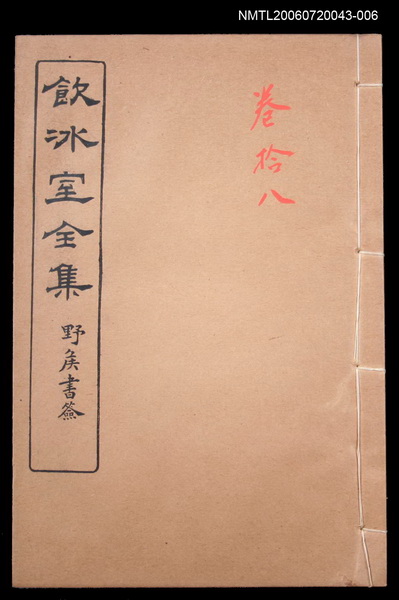 NMTL20060720043-006
卷拾八
飲冰室全集
野矦書籤